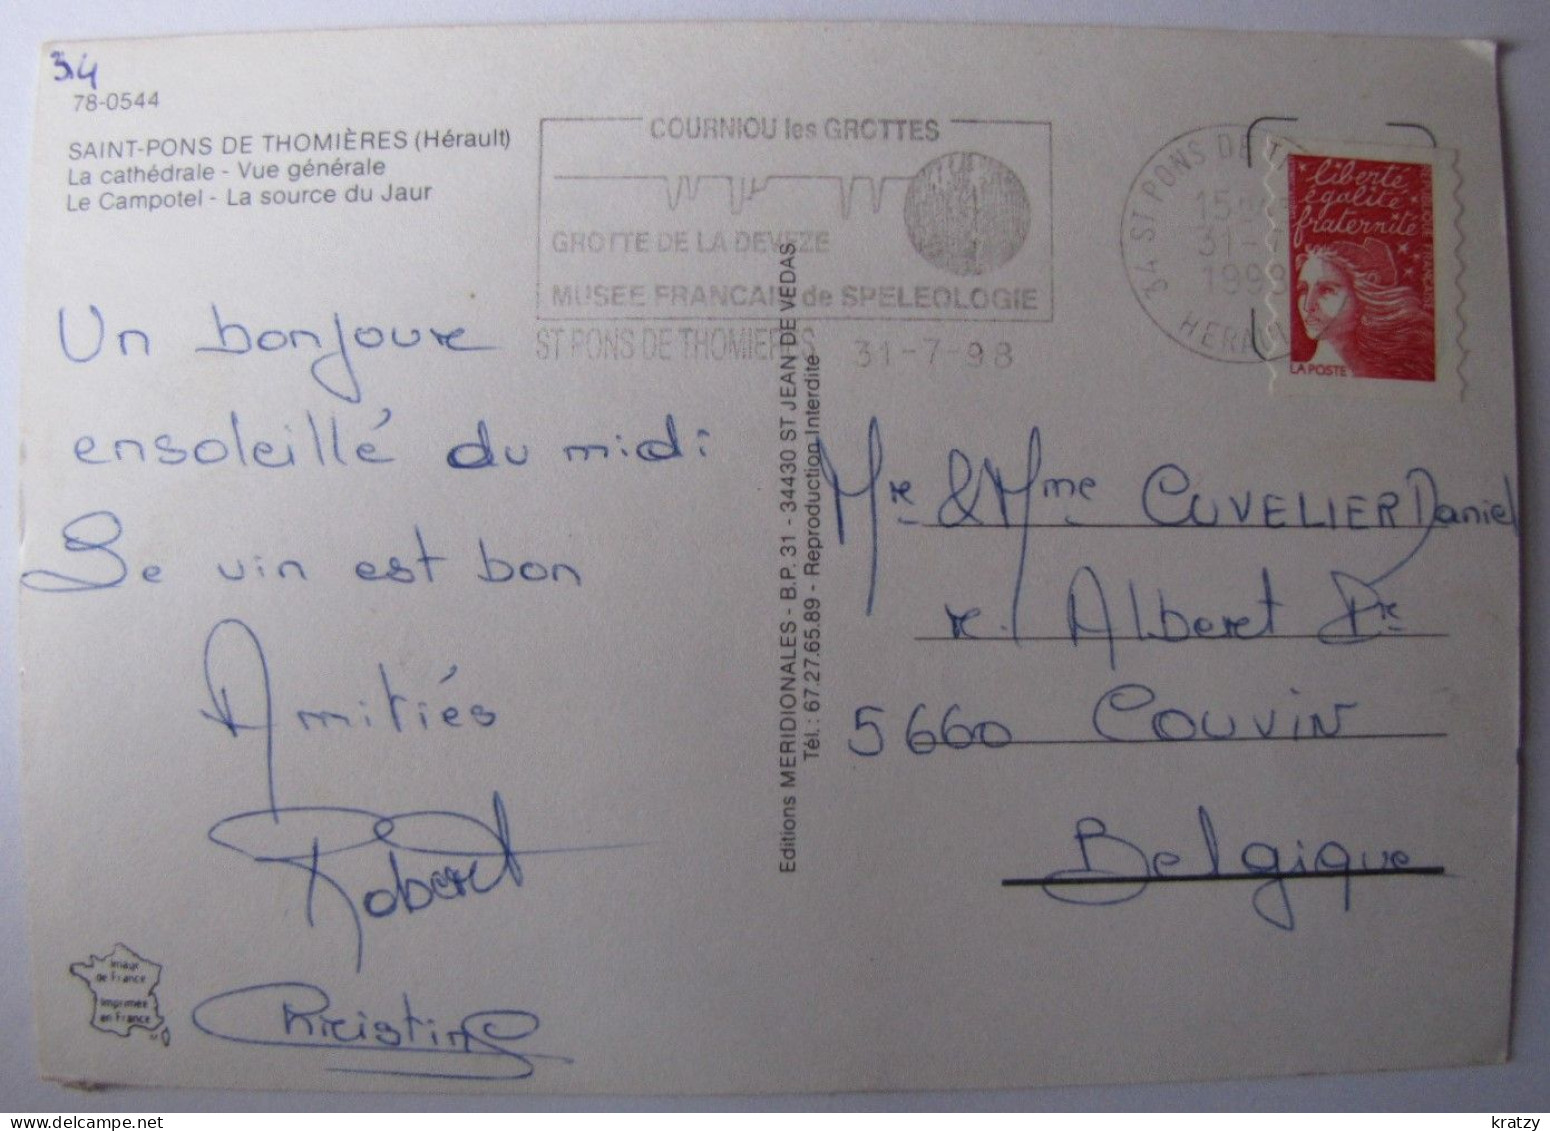 34
78-0544
SAINT-PONS DE THOMIÈRES (Hérault)
La cathédrale - Vue générale
Le Campotel - La source du Jaur
COURNIOU les GROTTES
GROTTE DE LA DEVEZE
MUSEE FRANCAIS de SPELEOLOGIE
ST PONS DE THOMIERES 31-7-98
34 ST PONS DE
31-7
HERAUL
liberté
égalité
fraternité
LA POSTE
Un bonjour
ensoleillé du midi
Le vin est bon
Amitiés
Robert
Christine
Images
de France
Imprimée
en France
Editions MERIDIONALES - B.P. 31 - 34430 ST JEAN DE VEDAS
Tél.: 67.27.65.89 - Reproduction Interdite
Mr & Mme CUVELIER Daniel
r. Albert 1er
5660 Couvin
Belgique
kratzy